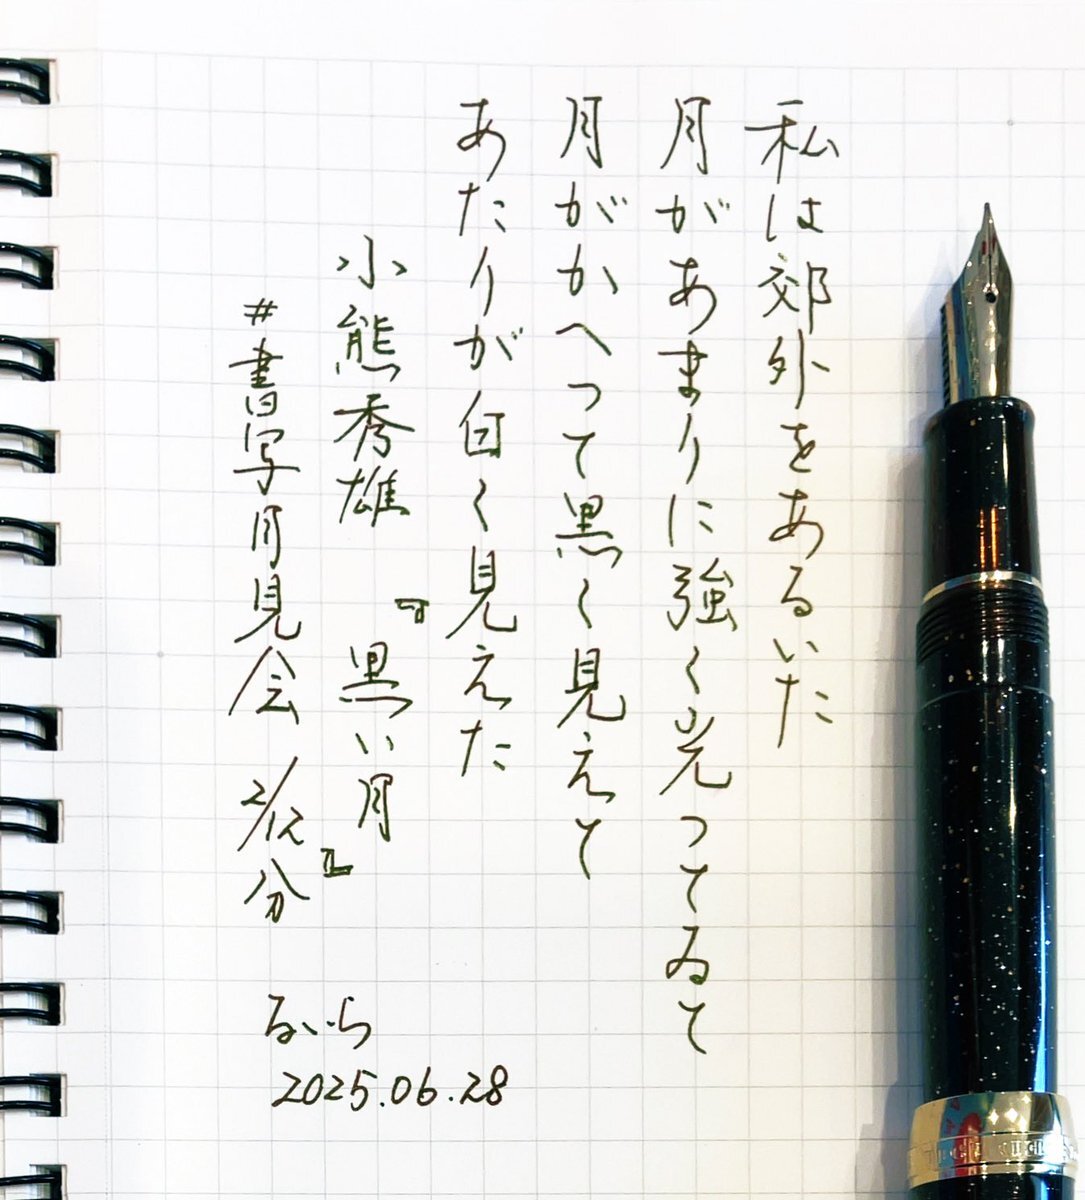 私は郊外をあるいた
月があまりに強く光つてゐて
月がかへって黒く見えて
あたりが白く見えた
小熊秀雄 『黒い月』
#書写月見会 2/12分
るいら
2025.06.28